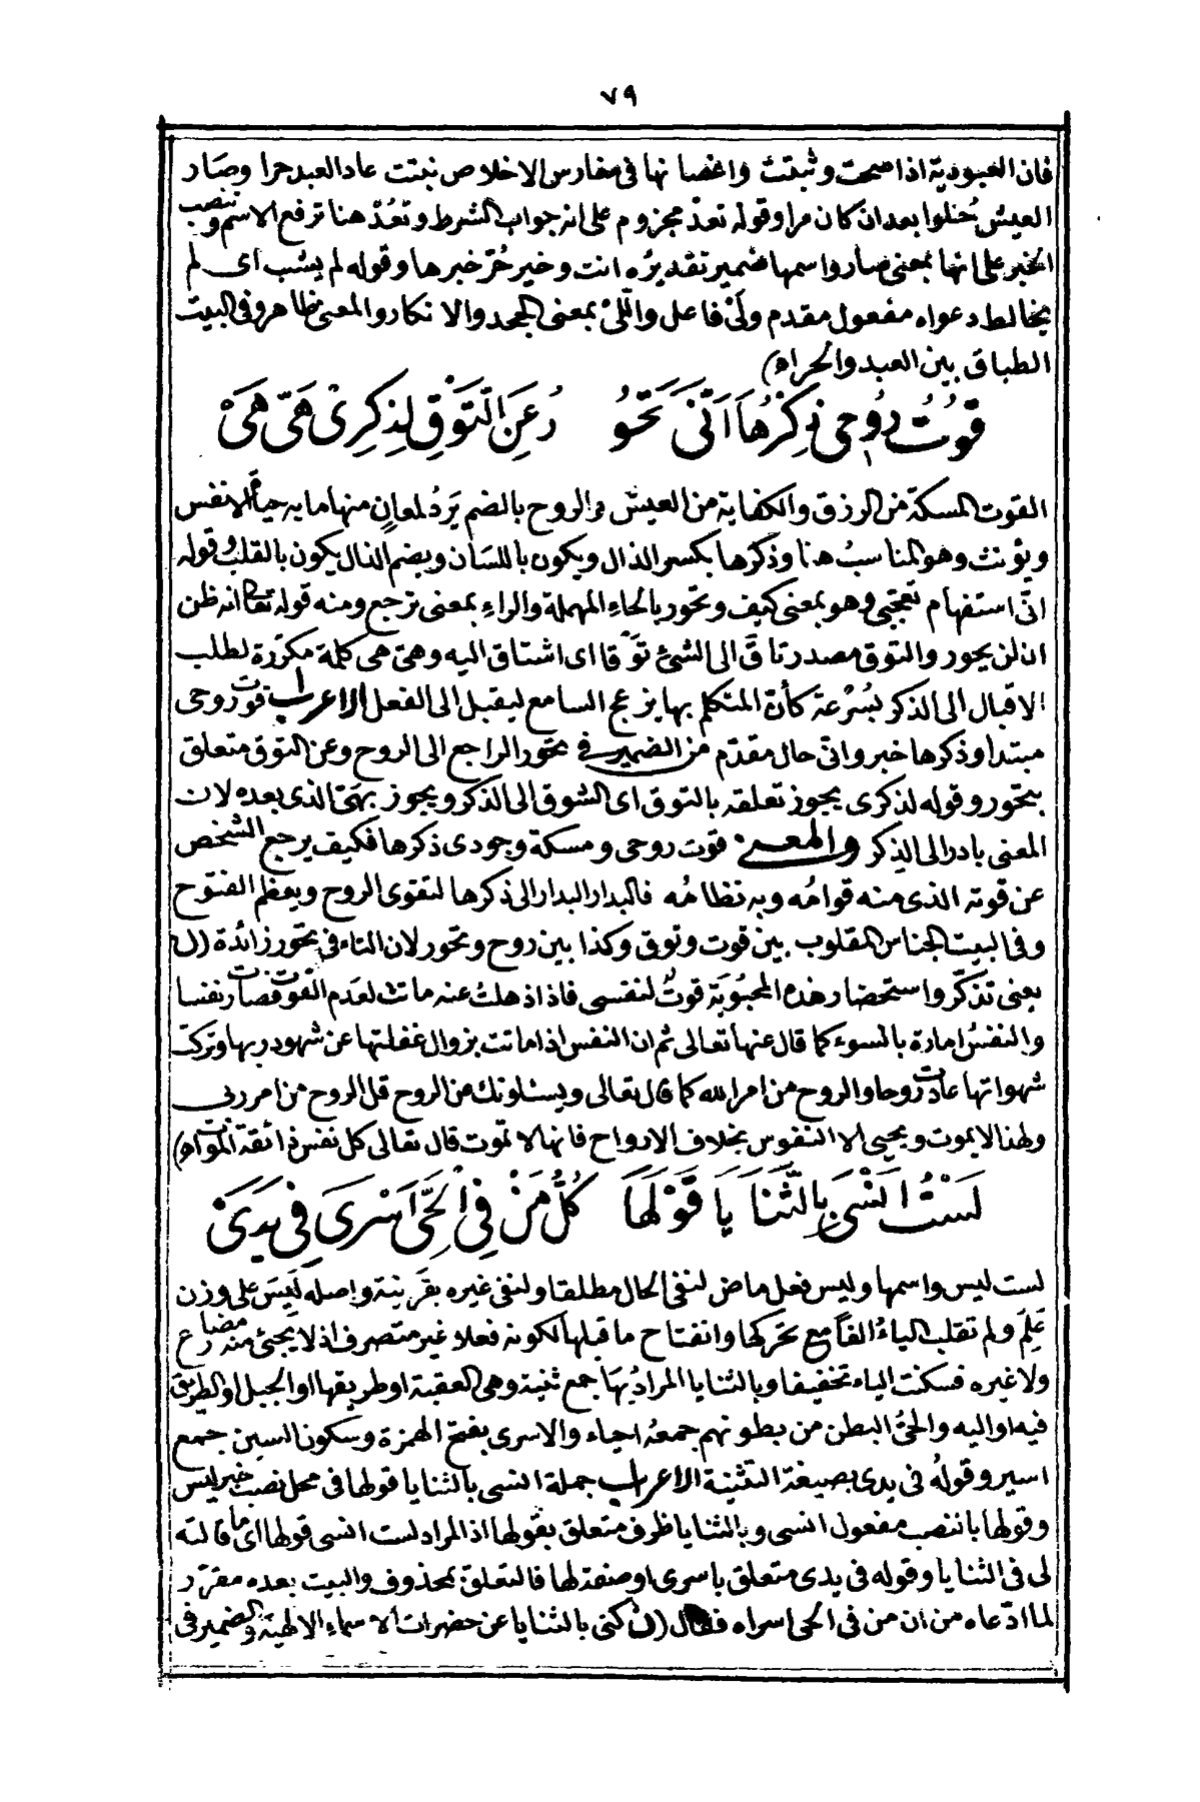 ٧٩
فان العبودية اذا صحت وثبتت واغصانها فى مغارس الاخلاص نبتت عاد العبد حرا وصار
العيش حلوا بعد ان كان مرا وقوله تعد مجزوم على انه جواب الشرط وتَعُدْ هنا ترفع الاسم وتنصب
الخبر على انها بمعنى صار واسمها ضمير تقديره انت وخير حُرّ خبرها وقوله لم يشب اى لم
يخالط دعواه مفعول مقدم ولَىّ فاعل واللّىّ بمعنى الجحد والانكار والمعنى ظاهر وفى البيت
الطباق بين العبد والحر اه)
قُوتُ رُوحِى ذِكْرُهَا اَنَّى تَحُو رُ عَنِ التَّوْقِ لِذِكْرِىْ هَىِّ هَىْ
القوت المسكة من الرزق والكفاية من العيش والروح بالضم يَرِدُ لمعانٍ منها ما به حياة الانفس
ويؤنث وهو المناسبُ هنا وذكرها بكسر الذال ويكون باللسَان وبضم الذال يكون بالقلب وقوله
انّى استفهام تعجبى وهو بمعنى كيف وتحور بالحاءِ المهملة والراءِ بمعنى ترجع ومنه قوله تعالى انه ظن
ان لن يحور والتوق مصدر تاقَ الى الشئ تَوْقا اى اشتاق اليه وهىّ هى كلمة مكرّرة لطلب
الاقبال الى الذكر بسُرْعة كأن المتكلم بها يزعج السامع ليقبل الى الفعل الاعراب قوت روحى
مبتدا وذكرها خبر وانّى حال مقدّم من الضمير فى تحور الراجع الى الروح وعن التوق متعلق
بتحور وقوله لذكرى يجوز تعلقه بالتوق اى الشوق الى الذكر ويجوز بهىّ الذى بعده لان
المعنى بادر الى الذكر والمعنى قوت روحى ومسكة وجودى ذكرها فكيف يرجع الشخص
عن قوته الذى منه قوامُه وبه نظامُه فالبدار البدار الى ذكرها لتقوى الروح ويعظم الفتوح
وفى البيت الجناس المقلوب بين قوت وتوق وكذا بين روح وتحور لان التاء فى تحور زائدة (ن)
يعنى تذكّر واستحضار هذه المحبُوبَة قوتٌ لنفسى فاذا ذهلتُ عنه ماتت لعَدَم القوت فصارت نفسا
والنفسُ امارة بالسوء كما قال عنها تعالى ثم ان النفس اذا ماتت بزوال غفلتها عن شهود ربها وتركت
شهواتها عادت روحا والروح من امر الله كما قال تعالى ويسئلونك عن الروح قل الروح من امر ربى
ولهذا لا يموت ويحيى الا النفوس بخلاف الارواح فانها لا تموت قال تعالى كل نفس ذائقة الموت اه)
لَسْتُ اَنْسَى بِالثَّنَايَا قَوْلَهَا كُلُّ مَنْ فِى الْحَىِّ اَسْرَى فِى يَدَىْ
لست ليس واسمها وليس فعل ماض لنفى الحال مطلقا ولنفى غيره بقَرينة واصله لَيِسَ على وزن
عَلِمَ ولم تقلب الياءُ الفًا مع تحركها وانفتاح ما قبلها لكونه فعلا غير متصرف اذ لا يجئ منه مضارع
ولا غيره فسكنت الياء تخفيفا وبالثنايا المرادُ بها جمع ثنية وهى العقبة او طريقها او الجبل او الطريق
فيه او اليه والحىُّ البطن من بطونهم جمعُهُ احياء والاسرى بفتح الهمزة وسكون السين جمع
اسير وقولُه فى يدى بصيغة التثنية الاعراب جملة انسى بالثنايا قولها فى محل نصب خبر ليس
وقولها بالنصب مفعول انسى وبالثنايا ظرف متعلق بقولها اذ المراد لست انسى قولها اى ما قالته
لى فى الثنايا وقوله فى يدى متعلق باسرى او صفة لها فالتعلق بمحذوف والبيت بعده مقرّر
لما ادّعاه من ان من فى الحى اسراه فقال (ن) كنى بالثنايا عن حضرات الاسماءِ الالهية والضمير فى